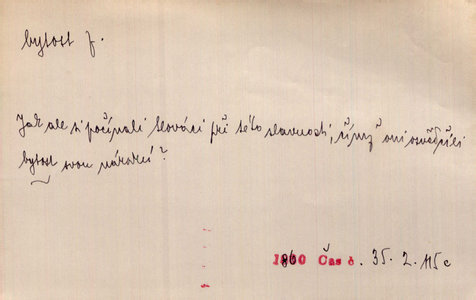 bytost f.
Jak ale si počínali Slováci při této slavnosti, čímž oni osvědčili
bytost svou národní?
1860 Čas č. 35. 2. 115 c